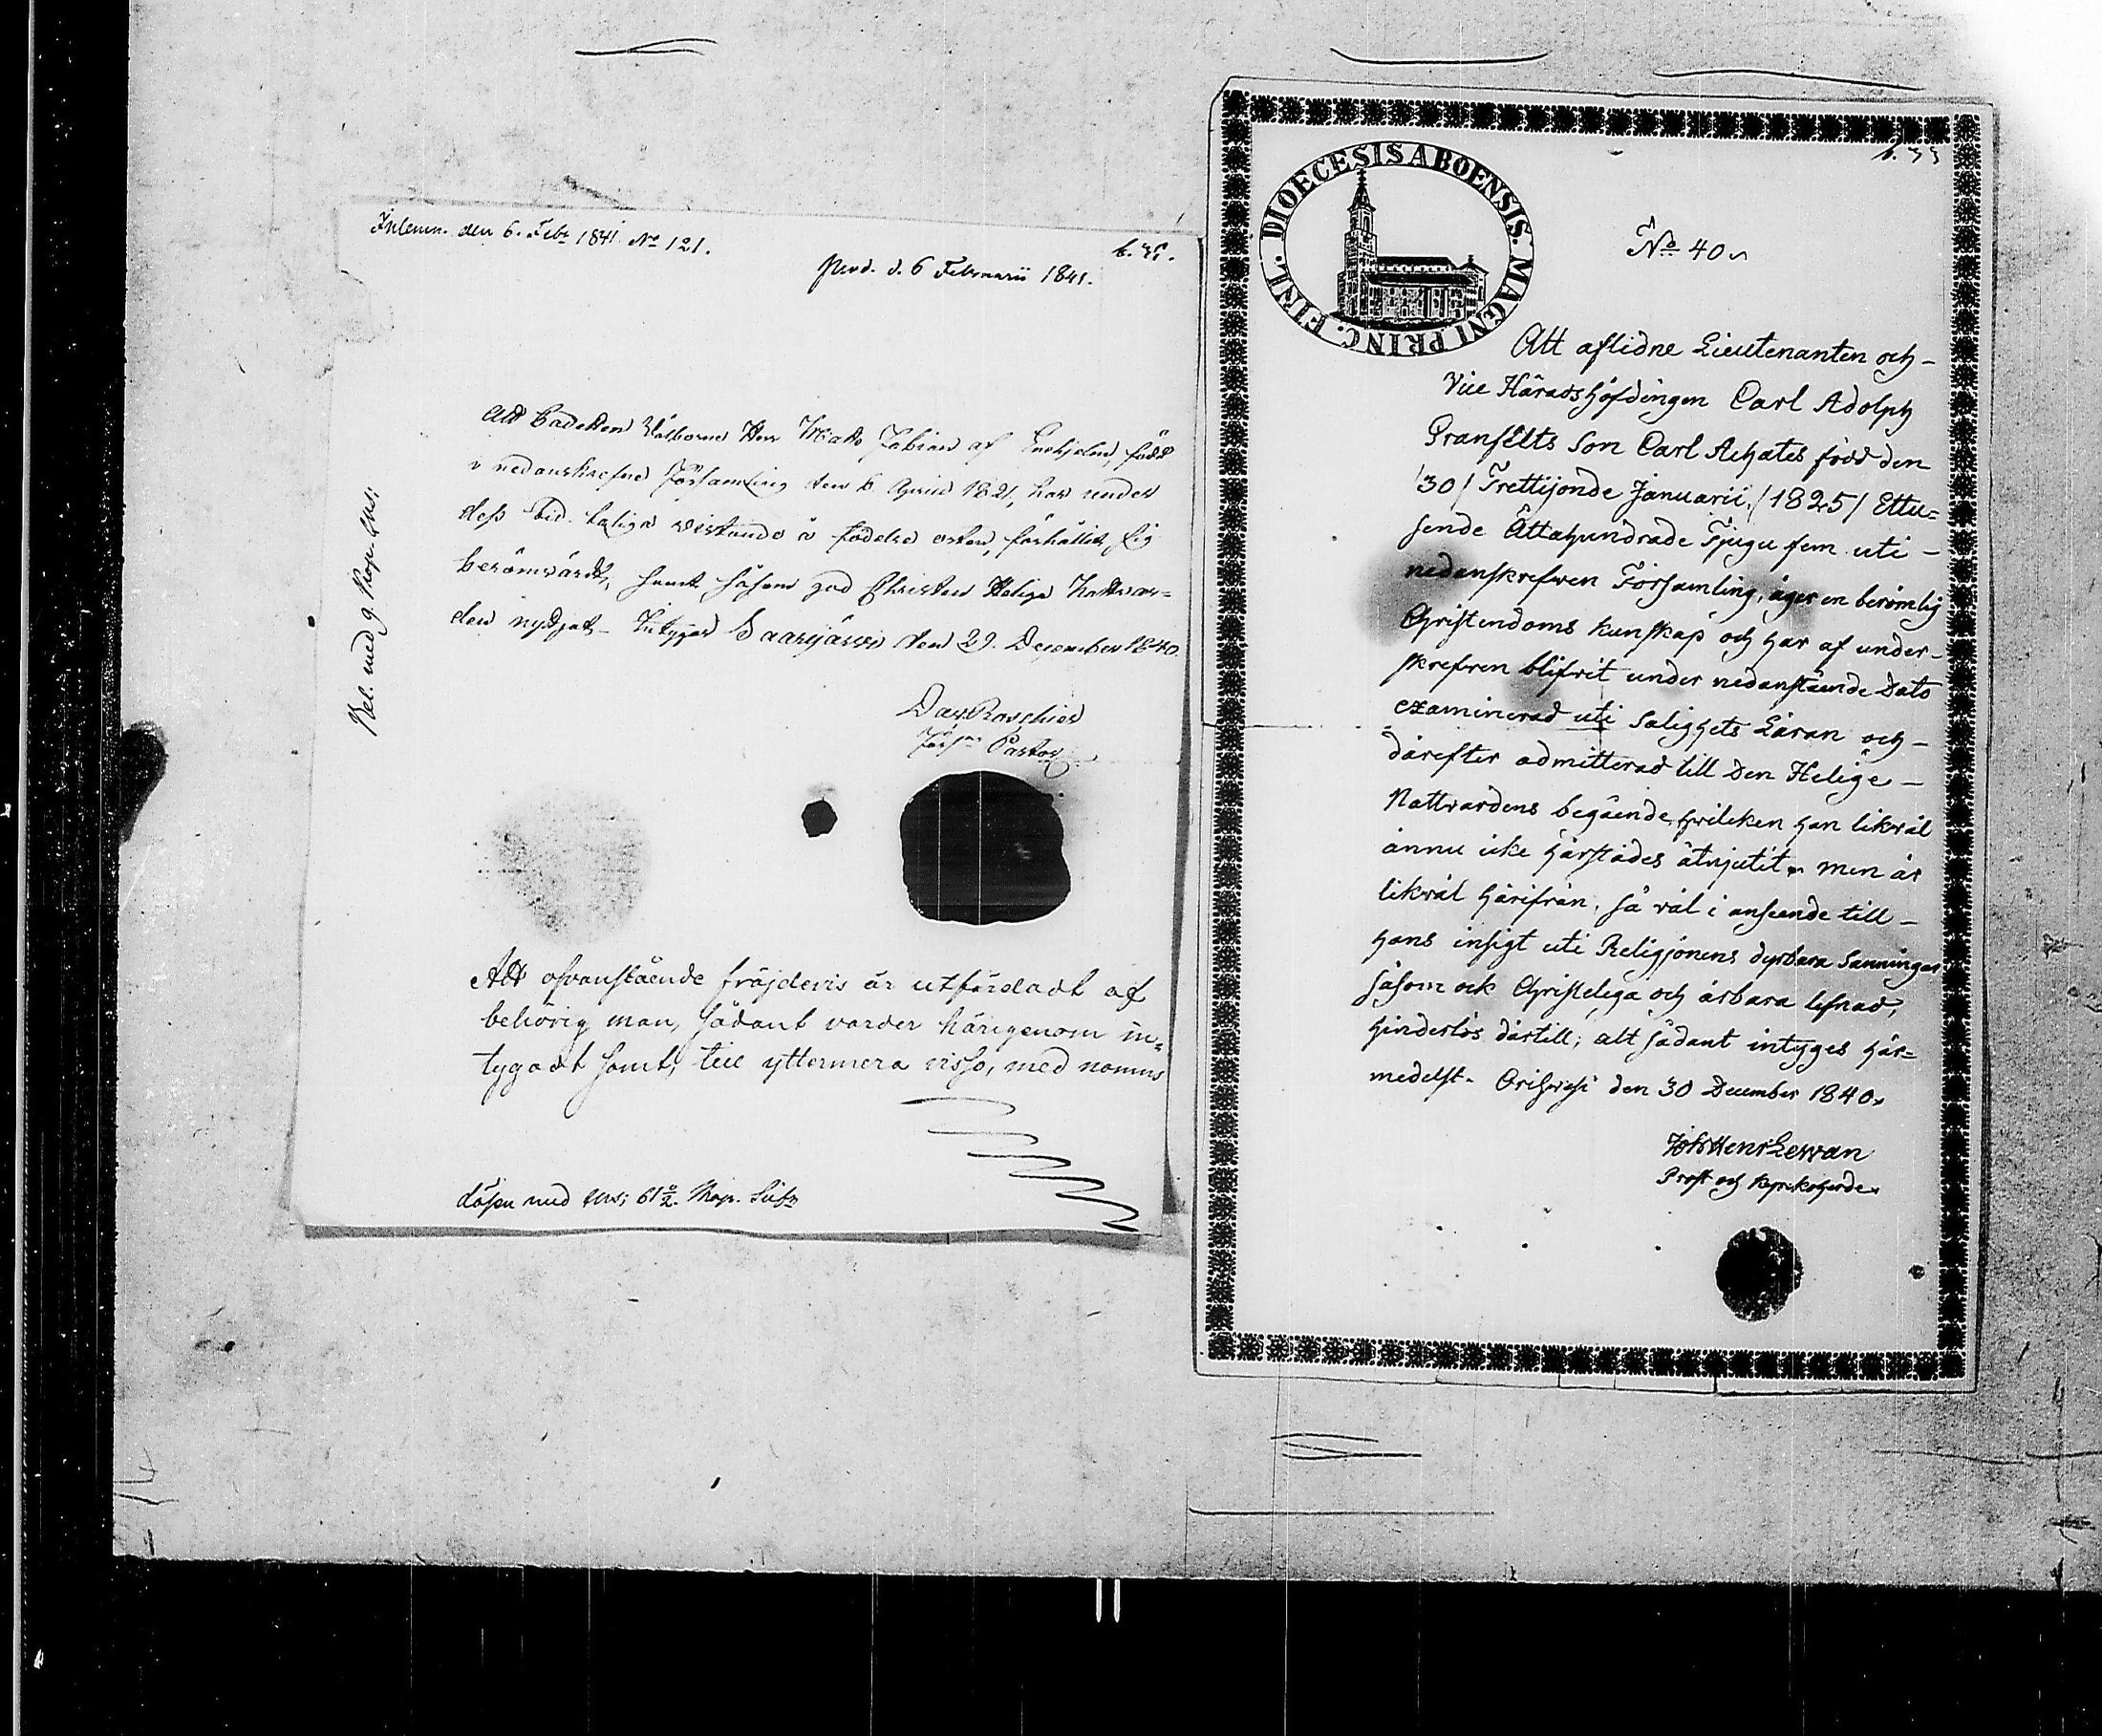 Inlemn. den 6. Febr 1841 No 121.
Prod. d. 6 Februarii 1841.
Att Cadetten Välborne Herr Mats Fabian af Enehjelm, född
i nedanskrefne Församling den 6 April 1821, har under
dess tid-taliga vistande å födelse orten, förhållit sig
berömvärdt, samt såsom god Christen Helige Nattvar-
den nyttjat. Intygar Saarijärvi den 29. December 1840.
Dav. Roschier
Pastor
Att ofvanstående fräjdevis är utfärdadt af
behörig man, sådant varder härigenom in-
tygadt samt, till yttermera visso, med namns
lösen med 61 1/2 Kop. Silfr
Bel. med 9 Kop.
DIOECESIS ABOENSIS. MAGNI PRINC. FINL.
No 40
Att aflidne Lieutenanten och
Vice Häradshöfdingen Carl Adolph
Granfelts Son Carl Achates född den
/30/ Trettijonde Januarii /1825/ Ettu-
sende Åttahundrade Tjugu fem uti
nedanskrefven Församling, äger en berömlig
Christendoms kunskap och har af under-
skrefven blifvit under nedanstående Dato
examinerad uti Salighets Läran och
därefter admitterad till Den Helige
Nattvardens begående, hvilcken han likväl
ännu icke härstädes åtnjutit men är
likväl härifrån, så väl i anseende till
hans insigt uti Religjonens dyrbara Sanningar
såsom ock Christeliga och ärbara lefnad,
hinderlös därtill; alt sådant intyges här-
medelst. Orihvesi den 30 December 1840.
Joh Henr Lewan
Prost och Kyrkoherde